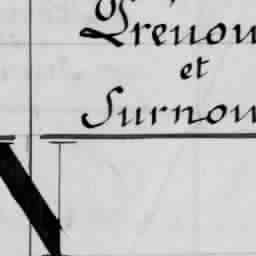 Prénom
et
Surnom
N